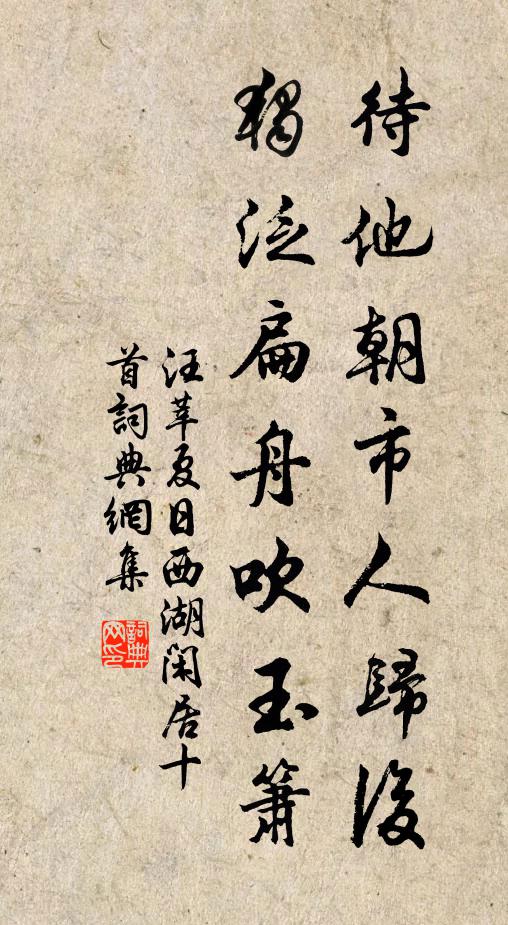 待他朝市人歸後
獨泛扁舟吹玉簫
汪莘夏日西湖閑居十
首詞典網集
詞典
网印